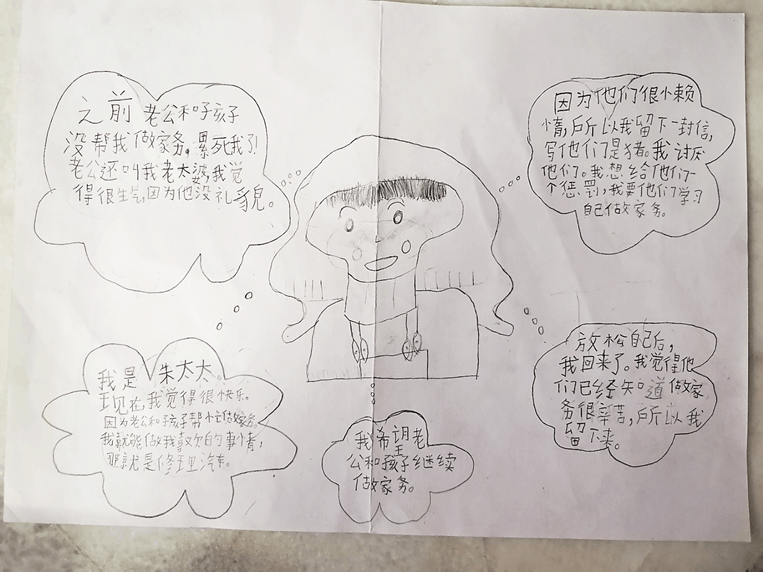 之前老公和孩子
没帮我做家务，累死我了！
老公还叫我老太婆，我觉
得很生气，因为他没礼貌。
因为他们很懒
惰，所以我留下一封信，
写他们是猪。我讨厌
他们。我想给他们一
个惩罚，我要他们学习
自己做家务。
我是朱太太。
现在我觉得很快乐。
因为老公和孩子帮忙做家务。
我就能够做我喜欢的事情，
那就是修理汽车。
我希望老
公和孩子继续
做家务。
放松自己后，
我回来了。我觉得他
们已经知道做家
务很辛苦，所以我
留下来。